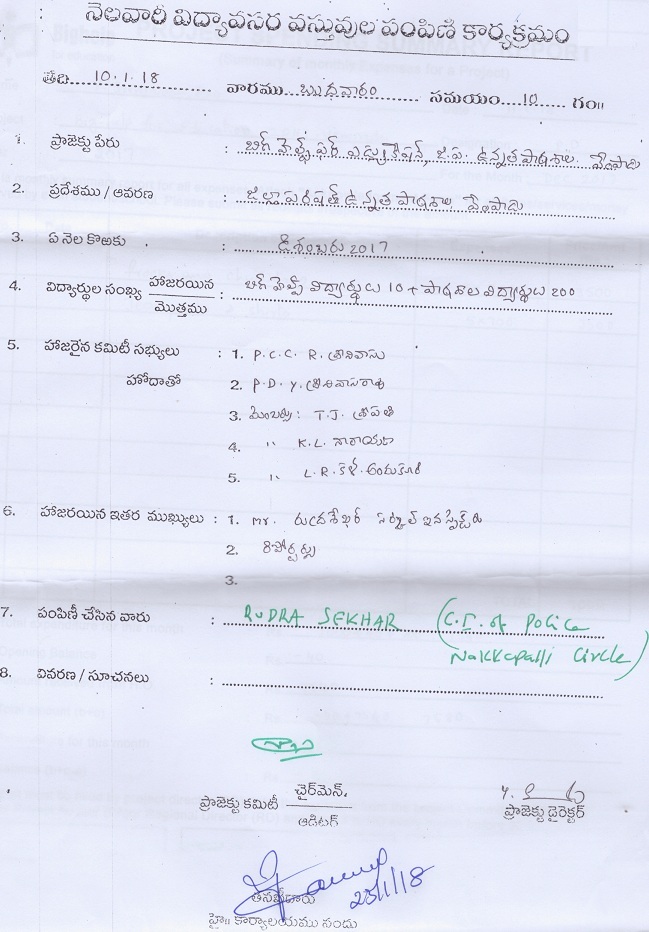 నెలవారి విద్యావసర వస్తువుల పంపిణి కార్యక్రమం
తేది...10.1.18 వారము...బుధవారం సమయం...10...గం॥
1. ప్రాజెక్టు పేరు : బిగ్ హెల్ప్ ఫర్ ఎడ్యుకేషన్, జి.ప. ఉన్నత పాఠశాల, వేంపాడు
2. ప్రదేశము / ఆవరణ : జిల్లా పరిషత్ ఉన్నత పాఠశాల, వేంపాడు
3. ఏ నెల కొఱకు : డిశంబరు 2017
4. విద్యార్థుల సంఖ్య హాజరయిన / మొత్తము : బిగ్ హెల్ప్ విద్యార్థులు 10 + పాఠశాల విద్యార్థులు 200
5. హాజరైన కమిటీ సభ్యులు : 1. P.C.C. R. శ్రీనివాసు
హోదాతో 2. P.D. Y. శ్రీనివాసరావు
3. మెంబర్లు: T.J. శ్రీపతి
4. " K.L. నారాయణ
5. " L.R.
6. హాజరయిన ఇతర ముఖ్యులు : 1. Mr. రుద్రశేఖర్ సర్కిల్ ఇన్స్పెక్టర్
2. రిపోర్టర్లు
3.
7. పంపిణీ చేసిన వారు : RUDRA SEKHAR (C.I. of Police
Nakkapalli Circle)
8. వివరణ / సూచనలు :
ప్రాజెక్టు కమిటీ చైర్‌మెన్. / ఆడిటర్
ప్రాజెక్టు డైరెక్టర్
23/1/18
తనిఖీదారు
హై॥ కార్యాలయము నందు